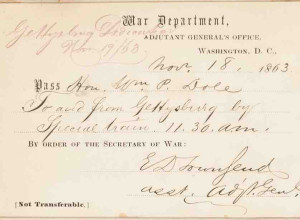 Gettysburg
Nov 19/63
War Department,
ADJUTANT GENERAL'S OFFICE,
WASHINGTON, D. C.,
Nov. 18, 1863
PASS Hon. Wm P. Dole
To and from Gettysburg by
Special train. 11.30. am.
BY ORDER OF THE SECRETARY OF WAR:
E D Townsend
asst. Adjt. Genl.
[Not Transferable.]